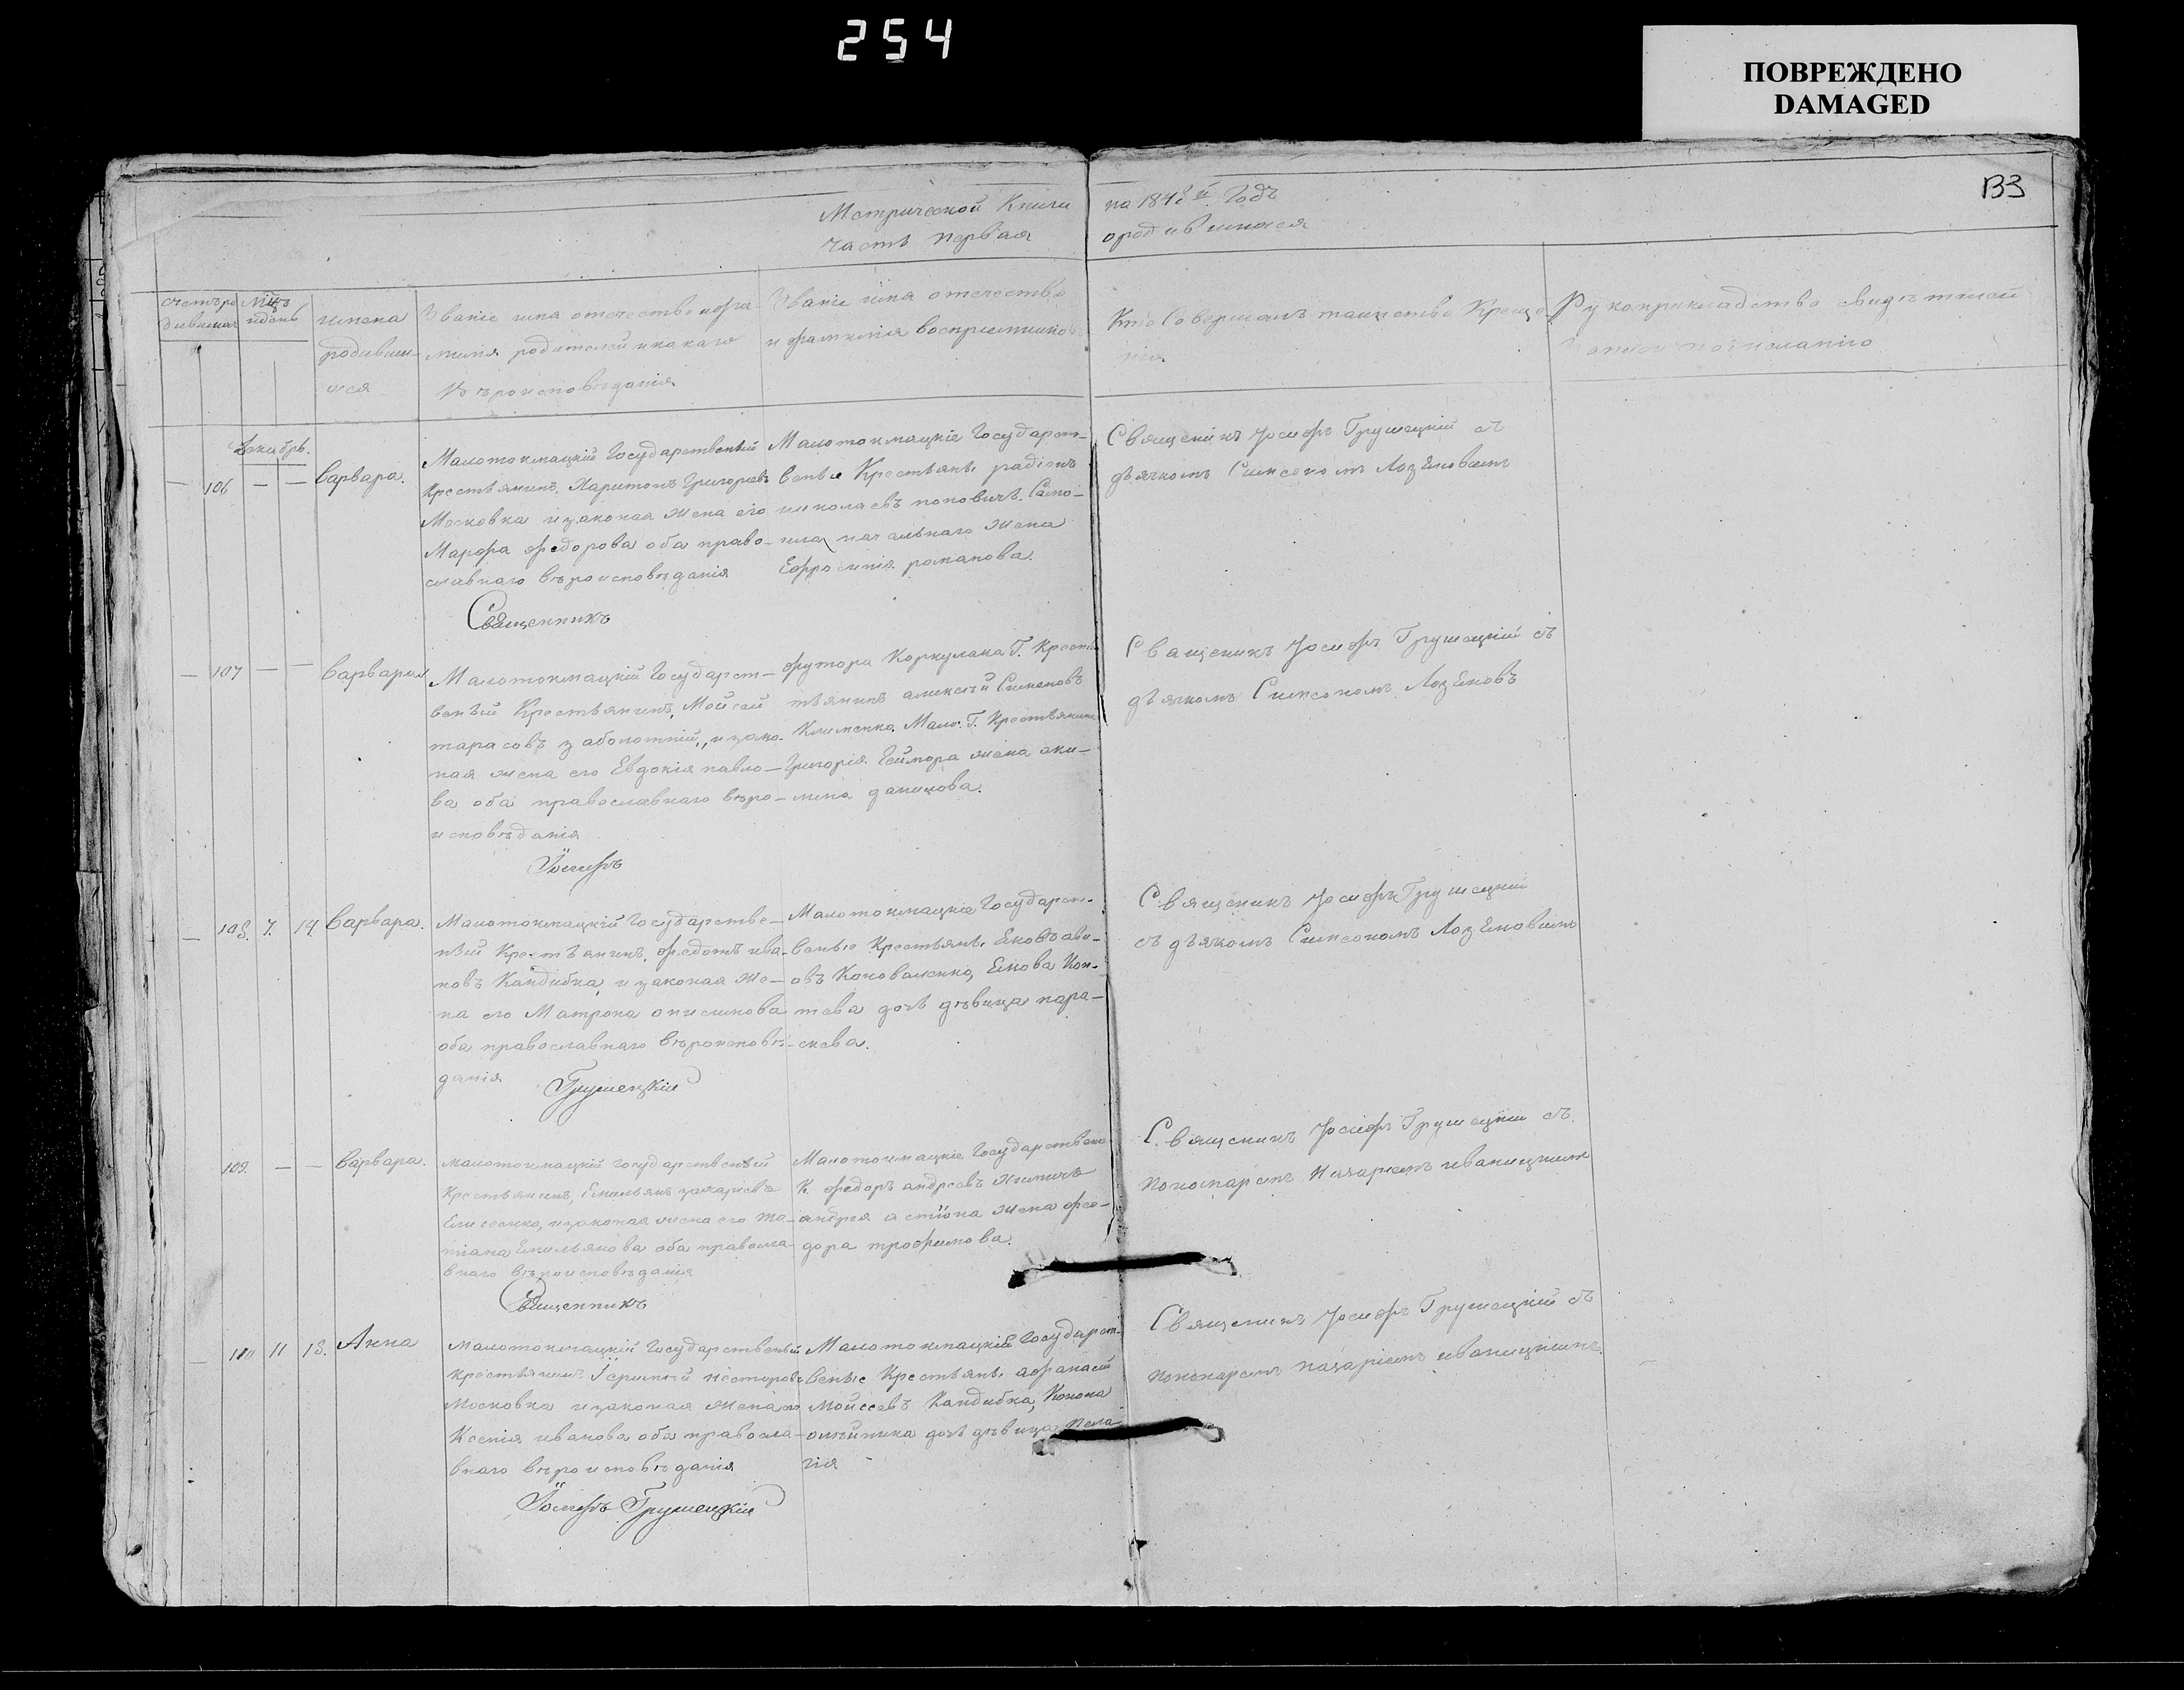 254
ПОВРЕЖДЕНО
DAMAGED
133
Метрической Книги на 184 й Годъ
часть первая о родившихся
счетъ ро мѣц
дившихся и день
имена
родивши-
хся
Званіе имя отечество и фа-
милія родителей и какаго
вѣроисповѣданія
Званіе имя отечество
и фамилія воспріемниковъ
Кто совершалъ таинство Креще-
нія
Рукоприкладство свидѣтелей
записи по желанію
Декабрь.
106 — — Варвара.
Малотокмацкій Государственый
Крестьянинъ, Харитонъ Григорьевъ
Московка и законая жена его
Марфа федорова оба право-
славнаго вѣроисповѣданія
Малотокмацкіе Государст-
веные Крестьяне
николаевъ поповичъ.
жена
романова.
Священикъ Іосифъ Грушецкій съ
дьячкомъ Симеономъ
Священникъ
107 — — Варвара
Малотокмацкій Государст-
веный Крестьянинъ, Мойсей
тарасовъ заболотній, и зако-
ная жена его Евдокія павло-
ва оба православнаго вѣро-
исповѣданія
футора Коркулака Г. Крест
тьянинъ алексѣй Сименовъ
Клименко. Мало. Г. Крестьянина
Григорія жена аки-
лина данилова.
Священикъ Іосифъ Грушецкій съ
дьячкомъ Симеономъ
Іосифъ
108. 7. 14 Варвара.
Малотокмацкій Государстве-
ный Крестьянинъ, федотъ ива-
новъ Кандибка, и законая же-
на его Матрона онисимова
оба православнаго вѣроисповѣ-
данія
Малотокмацкіе Государст-
веные Крестьяне
овъ Коноваленко,
дочь дѣвица пара-
скева.
Священикъ Іосифъ Грушецкій
съ дьячкомъ Симеономъ
Грушецкій
109. — — Варвара.
малотокмацкій государственый
Крестьянинъ, Емильянъ захаріевъ
Елисеенко, и законая жена его та-
тіана Емильянова оба правосла-
внаго вѣроисповѣданія
Малотокмацкіе Государствены
К федоръ андреевъ
андрея жена фео-
дора трофимова.
Священикъ Іосифъ Грушецкій съ
пономаремъ Назаріемъ иваницкимъ
Священникъ
110 11 18. Анна
малотокмацкій Государственый
крестьянинъ несторовъ
Московка и законая жена его
Ксенія иванова оба правосла-
внаго вѣроисповѣданія
Малотокмацкіе Государст-
веные Крестьяне афанасій
Мойсеевъ Кандибка, Конона
олѣйника дочь дѣвица Пела-
гія
Священикъ Іосифъ Грушецкій съ
пономаремъ назаріемъ иваницкимъ.
Іосифъ Грушецкій